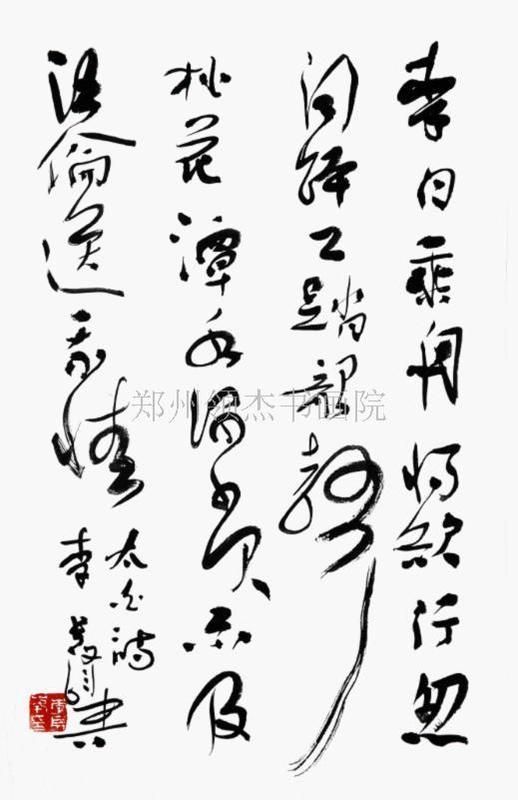 李白乘舟将欲行忽
闻岸上踏歌声
桃花潭水深千尺不及
汪伦送我情
太白诗
李
郑州领杰书画院